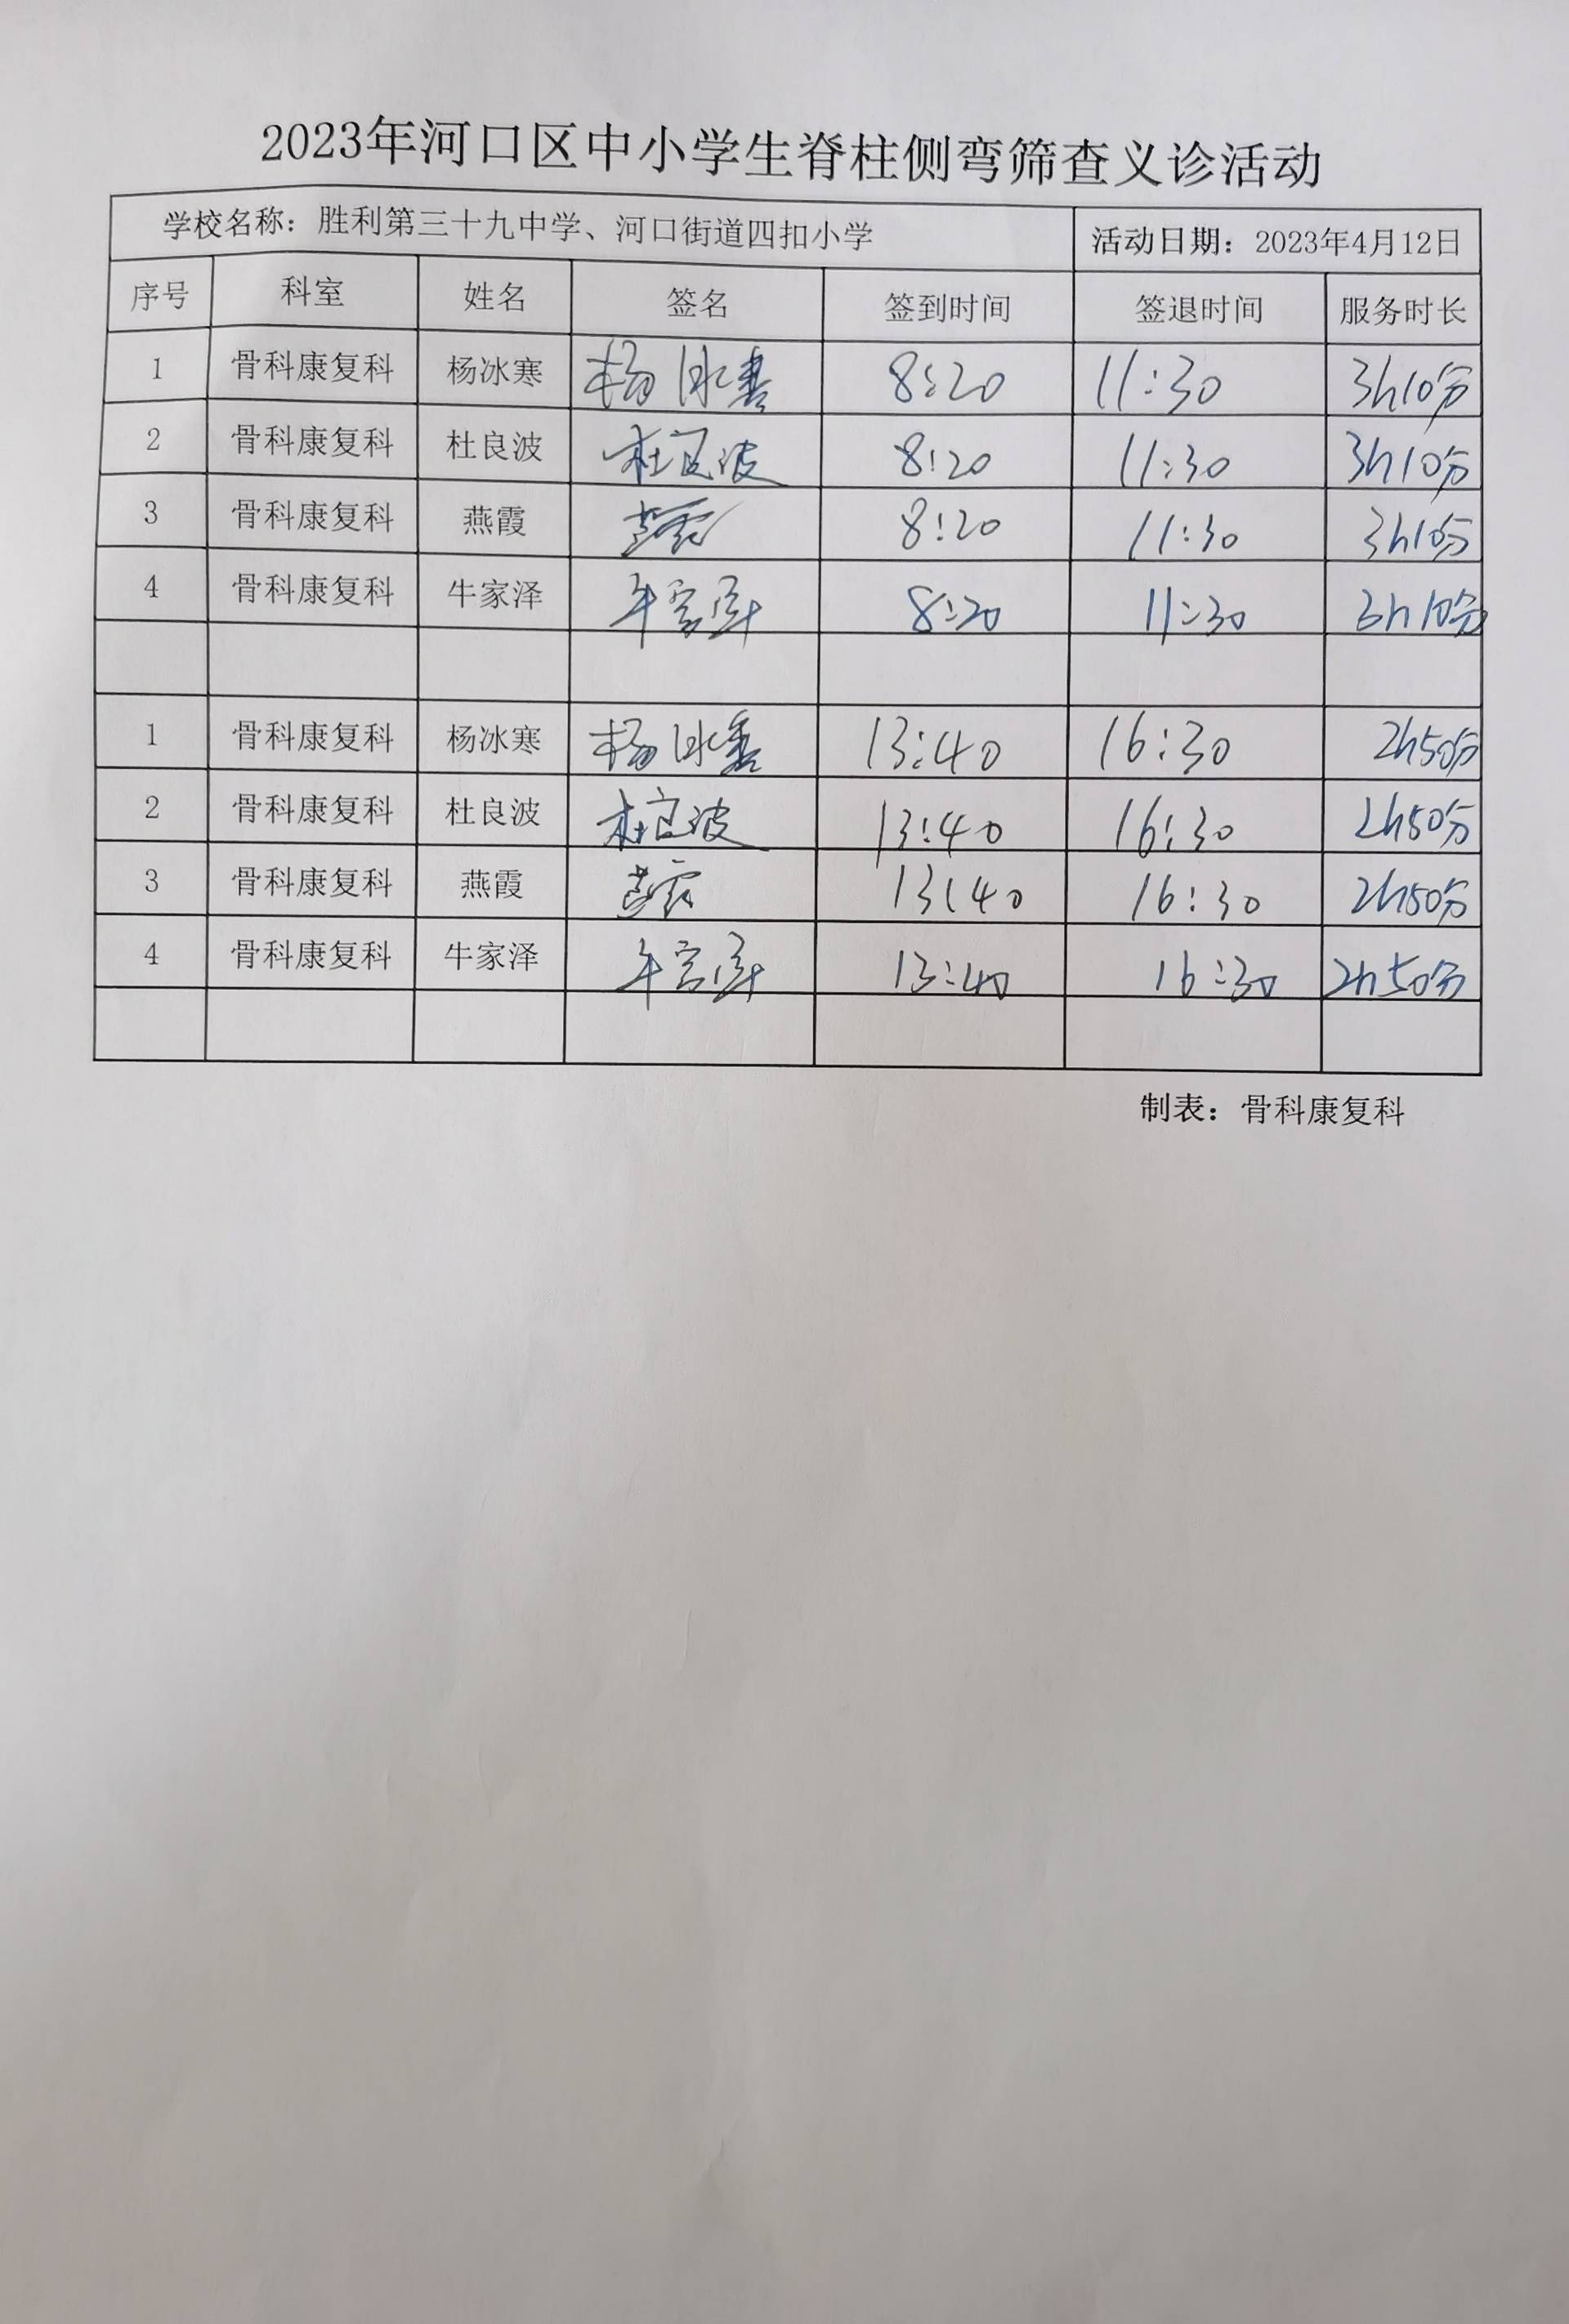 2023年河口区中小学生脊柱侧弯筛查义诊活动
学校名称：胜利第三十九中学、河口街道四扣小学 活动日期：2023年4月12日
序号 科室 姓名 签名 签到时间 签退时间 服务时长
1 骨科康复科 杨冰寒 杨冰寒 8:20 11:30 3h10分
2 骨科康复科 杜良波 杜良波 8:20 11:30 3h10分
3 骨科康复科 燕霞 燕霞 8:20 11:30 3h10分
4 骨科康复科 牛家泽 牛家泽 8:20 11:30 3h10分
1 骨科康复科 杨冰寒 杨冰寒 13:40 16:30 2h50分
2 骨科康复科 杜良波 杜良波 13:40 16:30 2h50分
3 骨科康复科 燕霞 燕霞 13:40 16:30 2h50分
4 骨科康复科 牛家泽 牛家泽 13:40 16:30 2h50分
制表：骨科康复科